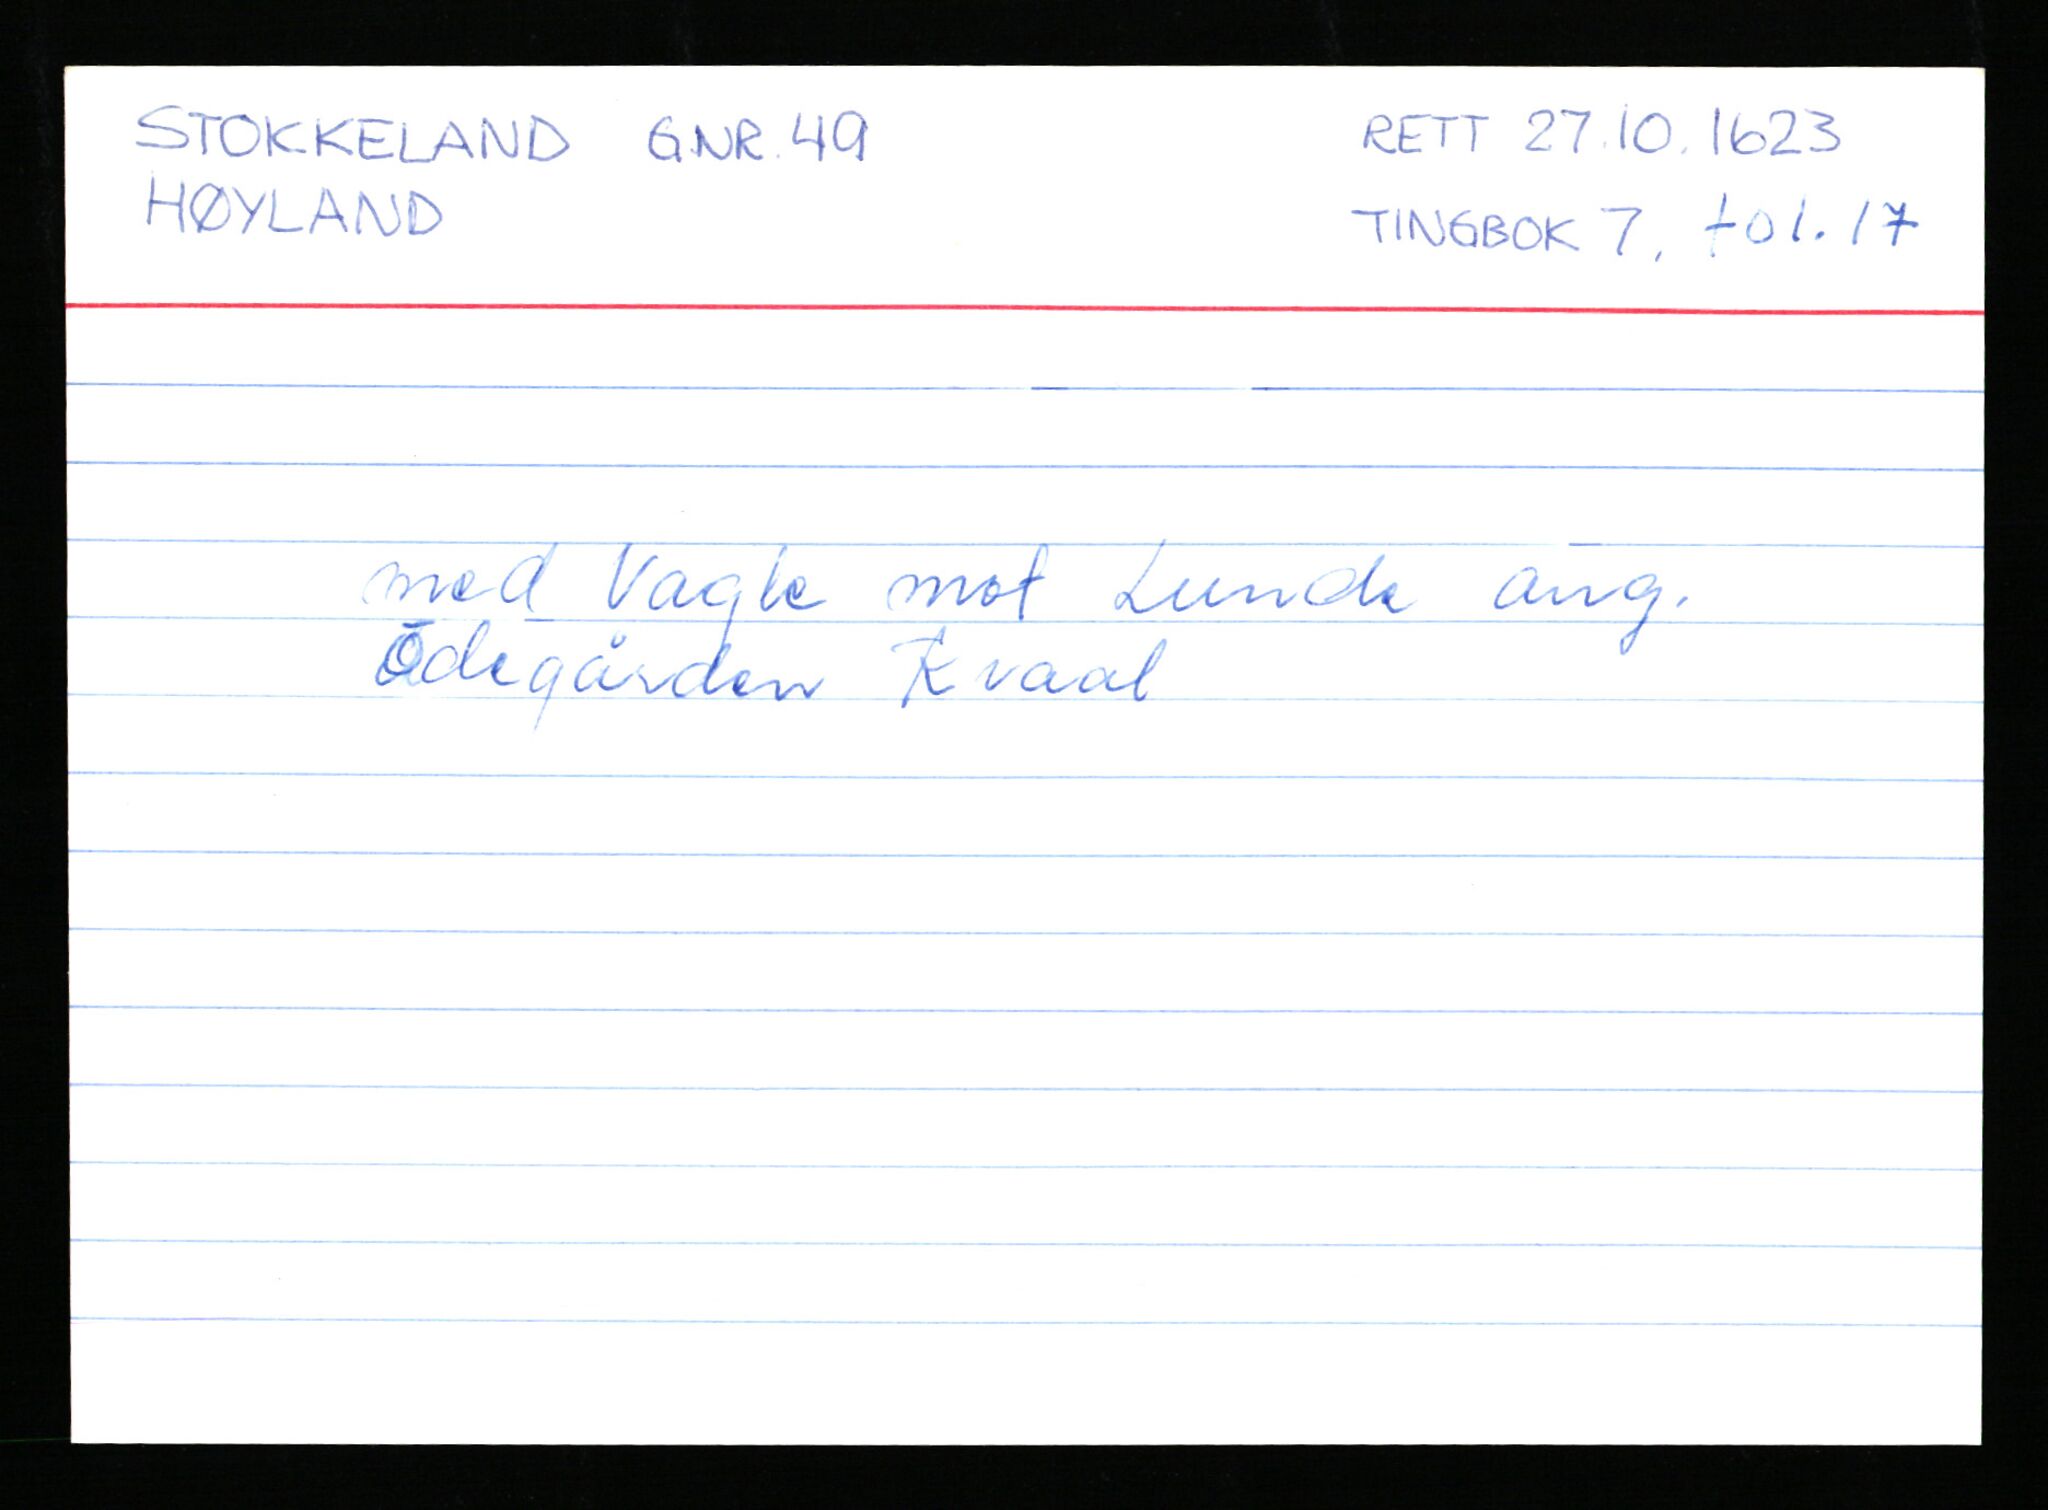 STOKKELAND GNR. 49
HØYLAND
RETT 27.10.1623
TINGBOK 7, fol. 17
med Vagle mot Lunde ang.
Ødegården Kvaal